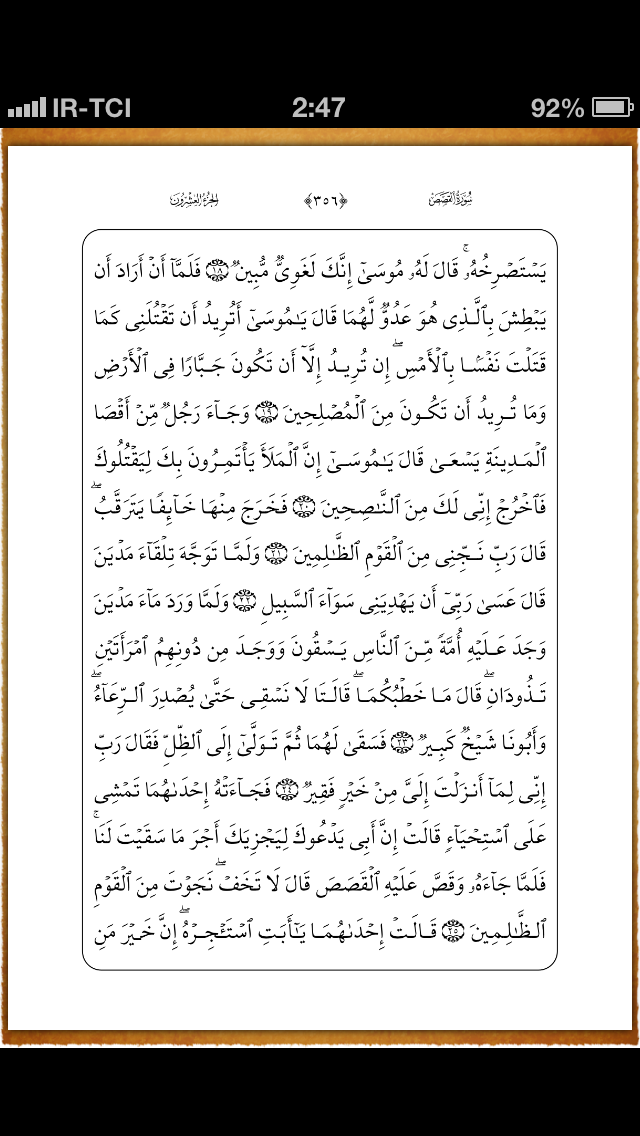 IR-TCI 2:47 92%
سُورَةُ القَصَصِ ﴿٣٥٦﴾ الجُزءُ العِشْرُونَ
يَسْتَصْرِخُهُۥ ۚ قَالَ لَهُۥ مُوسَىٰٓ إِنَّكَ لَغَوِىٌّ مُّبِينٌ ١٨ فَلَمَّآ أَنْ أَرَادَ أَن
يَبْطِشَ بِٱلَّذِى هُوَ عَدُوٌّ لَّهُمَا قَالَ يَـٰمُوسَىٰٓ أَتُرِيدُ أَن تَقْتُلَنِى كَمَا
قَتَلْتَ نَفْسًۢا بِٱلْأَمْسِ ۖ إِن تُرِيدُ إِلَّآ أَن تَكُونَ جَبَّارًا فِى ٱلْأَرْضِ
وَمَا تُرِيدُ أَن تَكُونَ مِنَ ٱلْمُصْلِحِينَ ١٩ وَجَآءَ رَجُلٌ مِّنْ أَقْصَا
ٱلْمَدِينَةِ يَسْعَىٰ قَالَ يَـٰمُوسَىٰٓ إِنَّ ٱلْمَلَأَ يَأْتَمِرُونَ بِكَ لِيَقْتُلُوكَ
فَٱخْرُجْ إِنِّى لَكَ مِنَ ٱلنَّـٰصِحِينَ ٢٠ فَخَرَجَ مِنْهَا خَآئِفًا يَتَرَقَّبُ ۖ
قَالَ رَبِّ نَجِّنِى مِنَ ٱلْقَوْمِ ٱلظَّـٰلِمِينَ ٢١ وَلَمَّا تَوَجَّهَ تِلْقَآءَ مَدْيَنَ
قَالَ عَسَىٰ رَبِّىٓ أَن يَهْدِيَنِى سَوَآءَ ٱلسَّبِيلِ ٢٢ وَلَمَّا وَرَدَ مَآءَ مَدْيَنَ
وَجَدَ عَلَيْهِ أُمَّةً مِّنَ ٱلنَّاسِ يَسْقُونَ وَوَجَدَ مِن دُونِهِمُ ٱمْرَأَتَيْنِ
تَذُودَانِ ۖ قَالَ مَا خَطْبُكُمَا ۖ قَالَتَا لَا نَسْقِى حَتَّىٰ يُصْدِرَ ٱلرِّعَآءُ ۖ
وَأَبُونَا شَيْخٌ كَبِيرٌ ٢٣ فَسَقَىٰ لَهُمَا ثُمَّ تَوَلَّىٰٓ إِلَى ٱلظِّلِّ فَقَالَ رَبِّ
إِنِّى لِمَآ أَنزَلْتَ إِلَىَّ مِنْ خَيْرٍ فَقِيرٌ ٢٤ فَجَآءَتْهُ إِحْدَىٰهُمَا تَمْشِى
عَلَى ٱسْتِحْيَآءٍ قَالَتْ إِنَّ أَبِى يَدْعُوكَ لِيَجْزِيَكَ أَجْرَ مَا سَقَيْتَ لَنَا ۚ
فَلَمَّا جَآءَهُۥ وَقَصَّ عَلَيْهِ ٱلْقَصَصَ قَالَ لَا تَخَفْ ۖ نَجَوْتَ مِنَ ٱلْقَوْمِ
ٱلظَّـٰلِمِينَ ٢٥ قَالَتْ إِحْدَىٰهُمَا يَـٰٓأَبَتِ ٱسْتَـْٔجِرْهُ ۖ إِنَّ خَيْرَ مَنِ